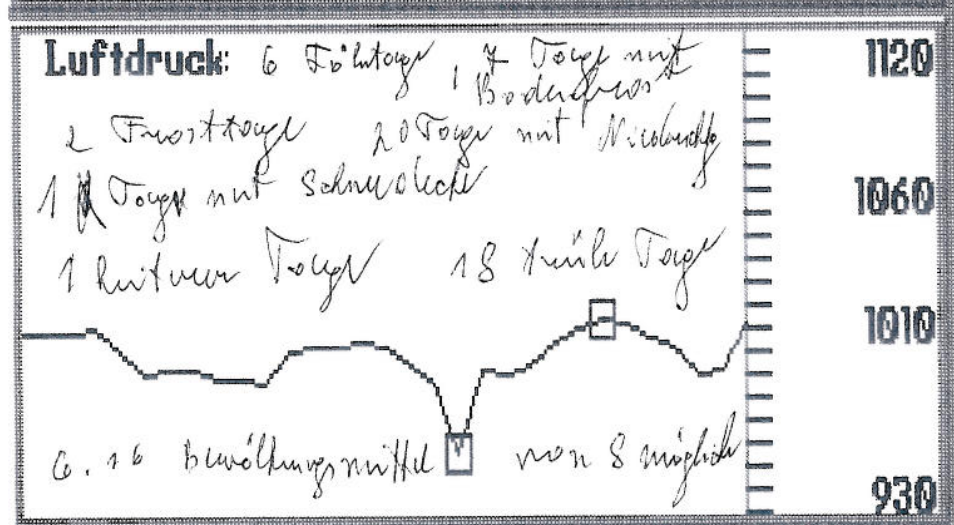 Luftdruck: 6 Föhntage, 7 Tage mit
Bodenfrost
2 Frosttage 20 Tage mit Niederschlag
1 Tag mit Schneedecke
1 heiterer Tag 18 trübe Tage
6.16 Bewölkungsmittel von 8 möglich
1120
1060
1010
930